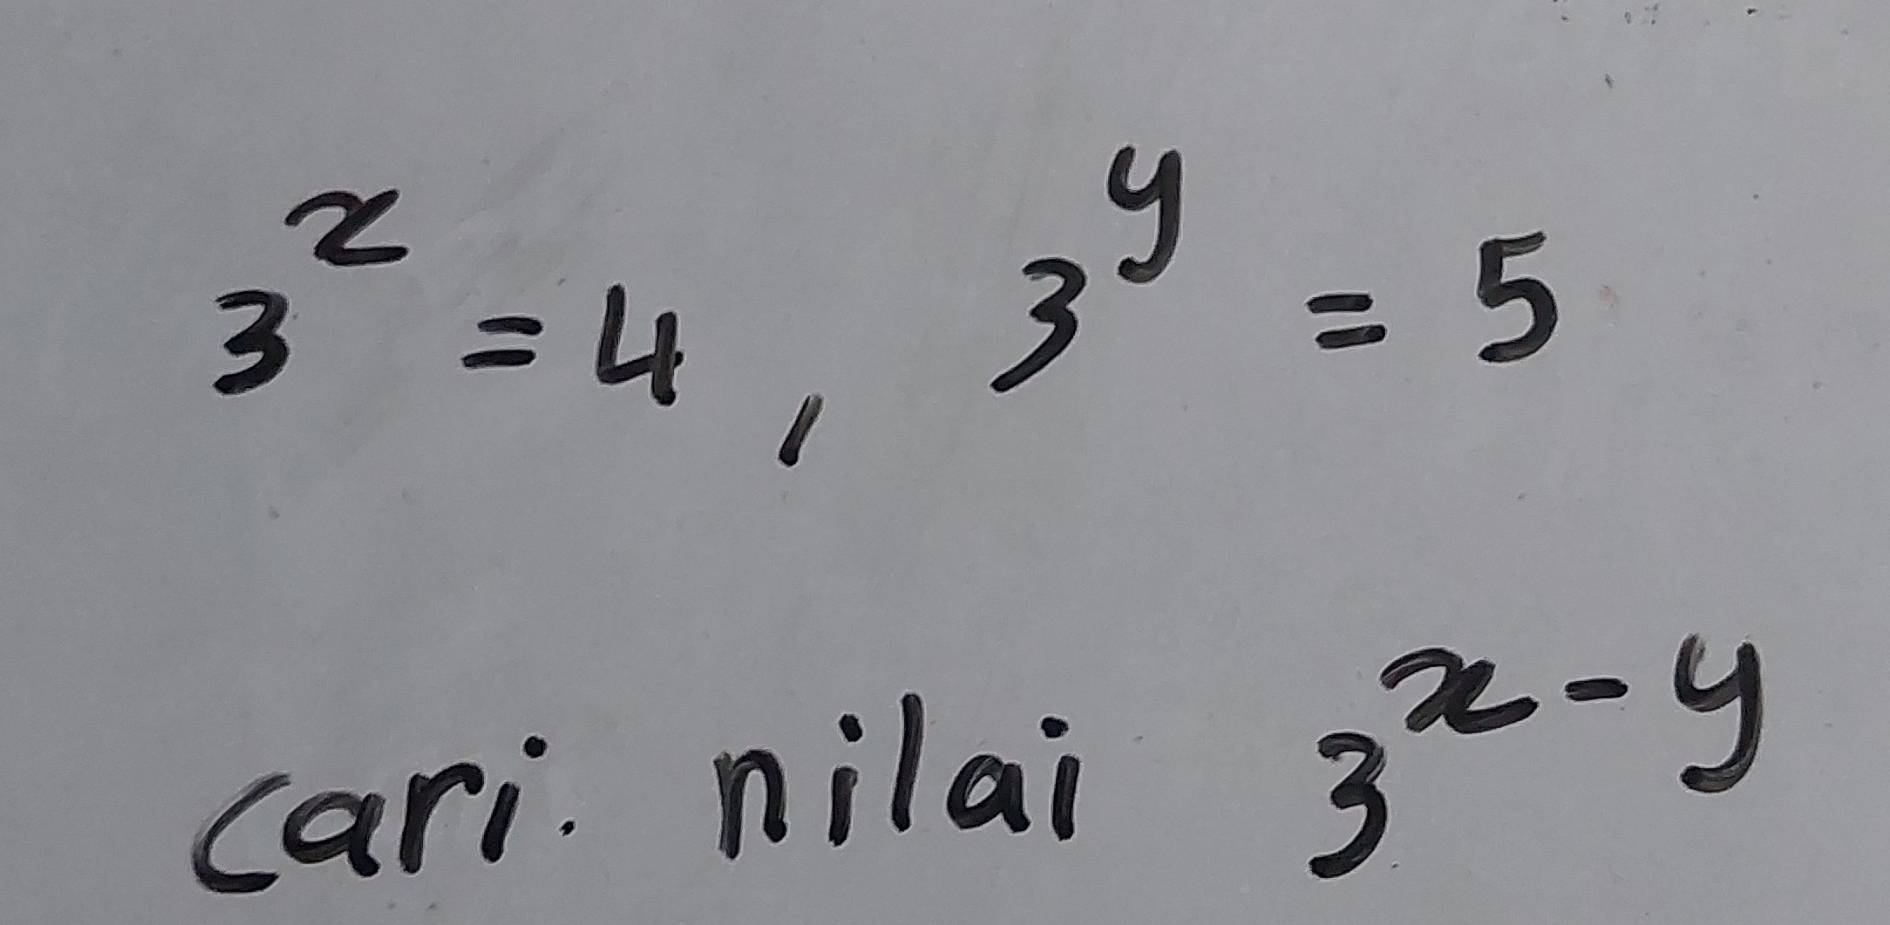 3^x = 4, 3^y = 5
cari. nilai 3^x-y